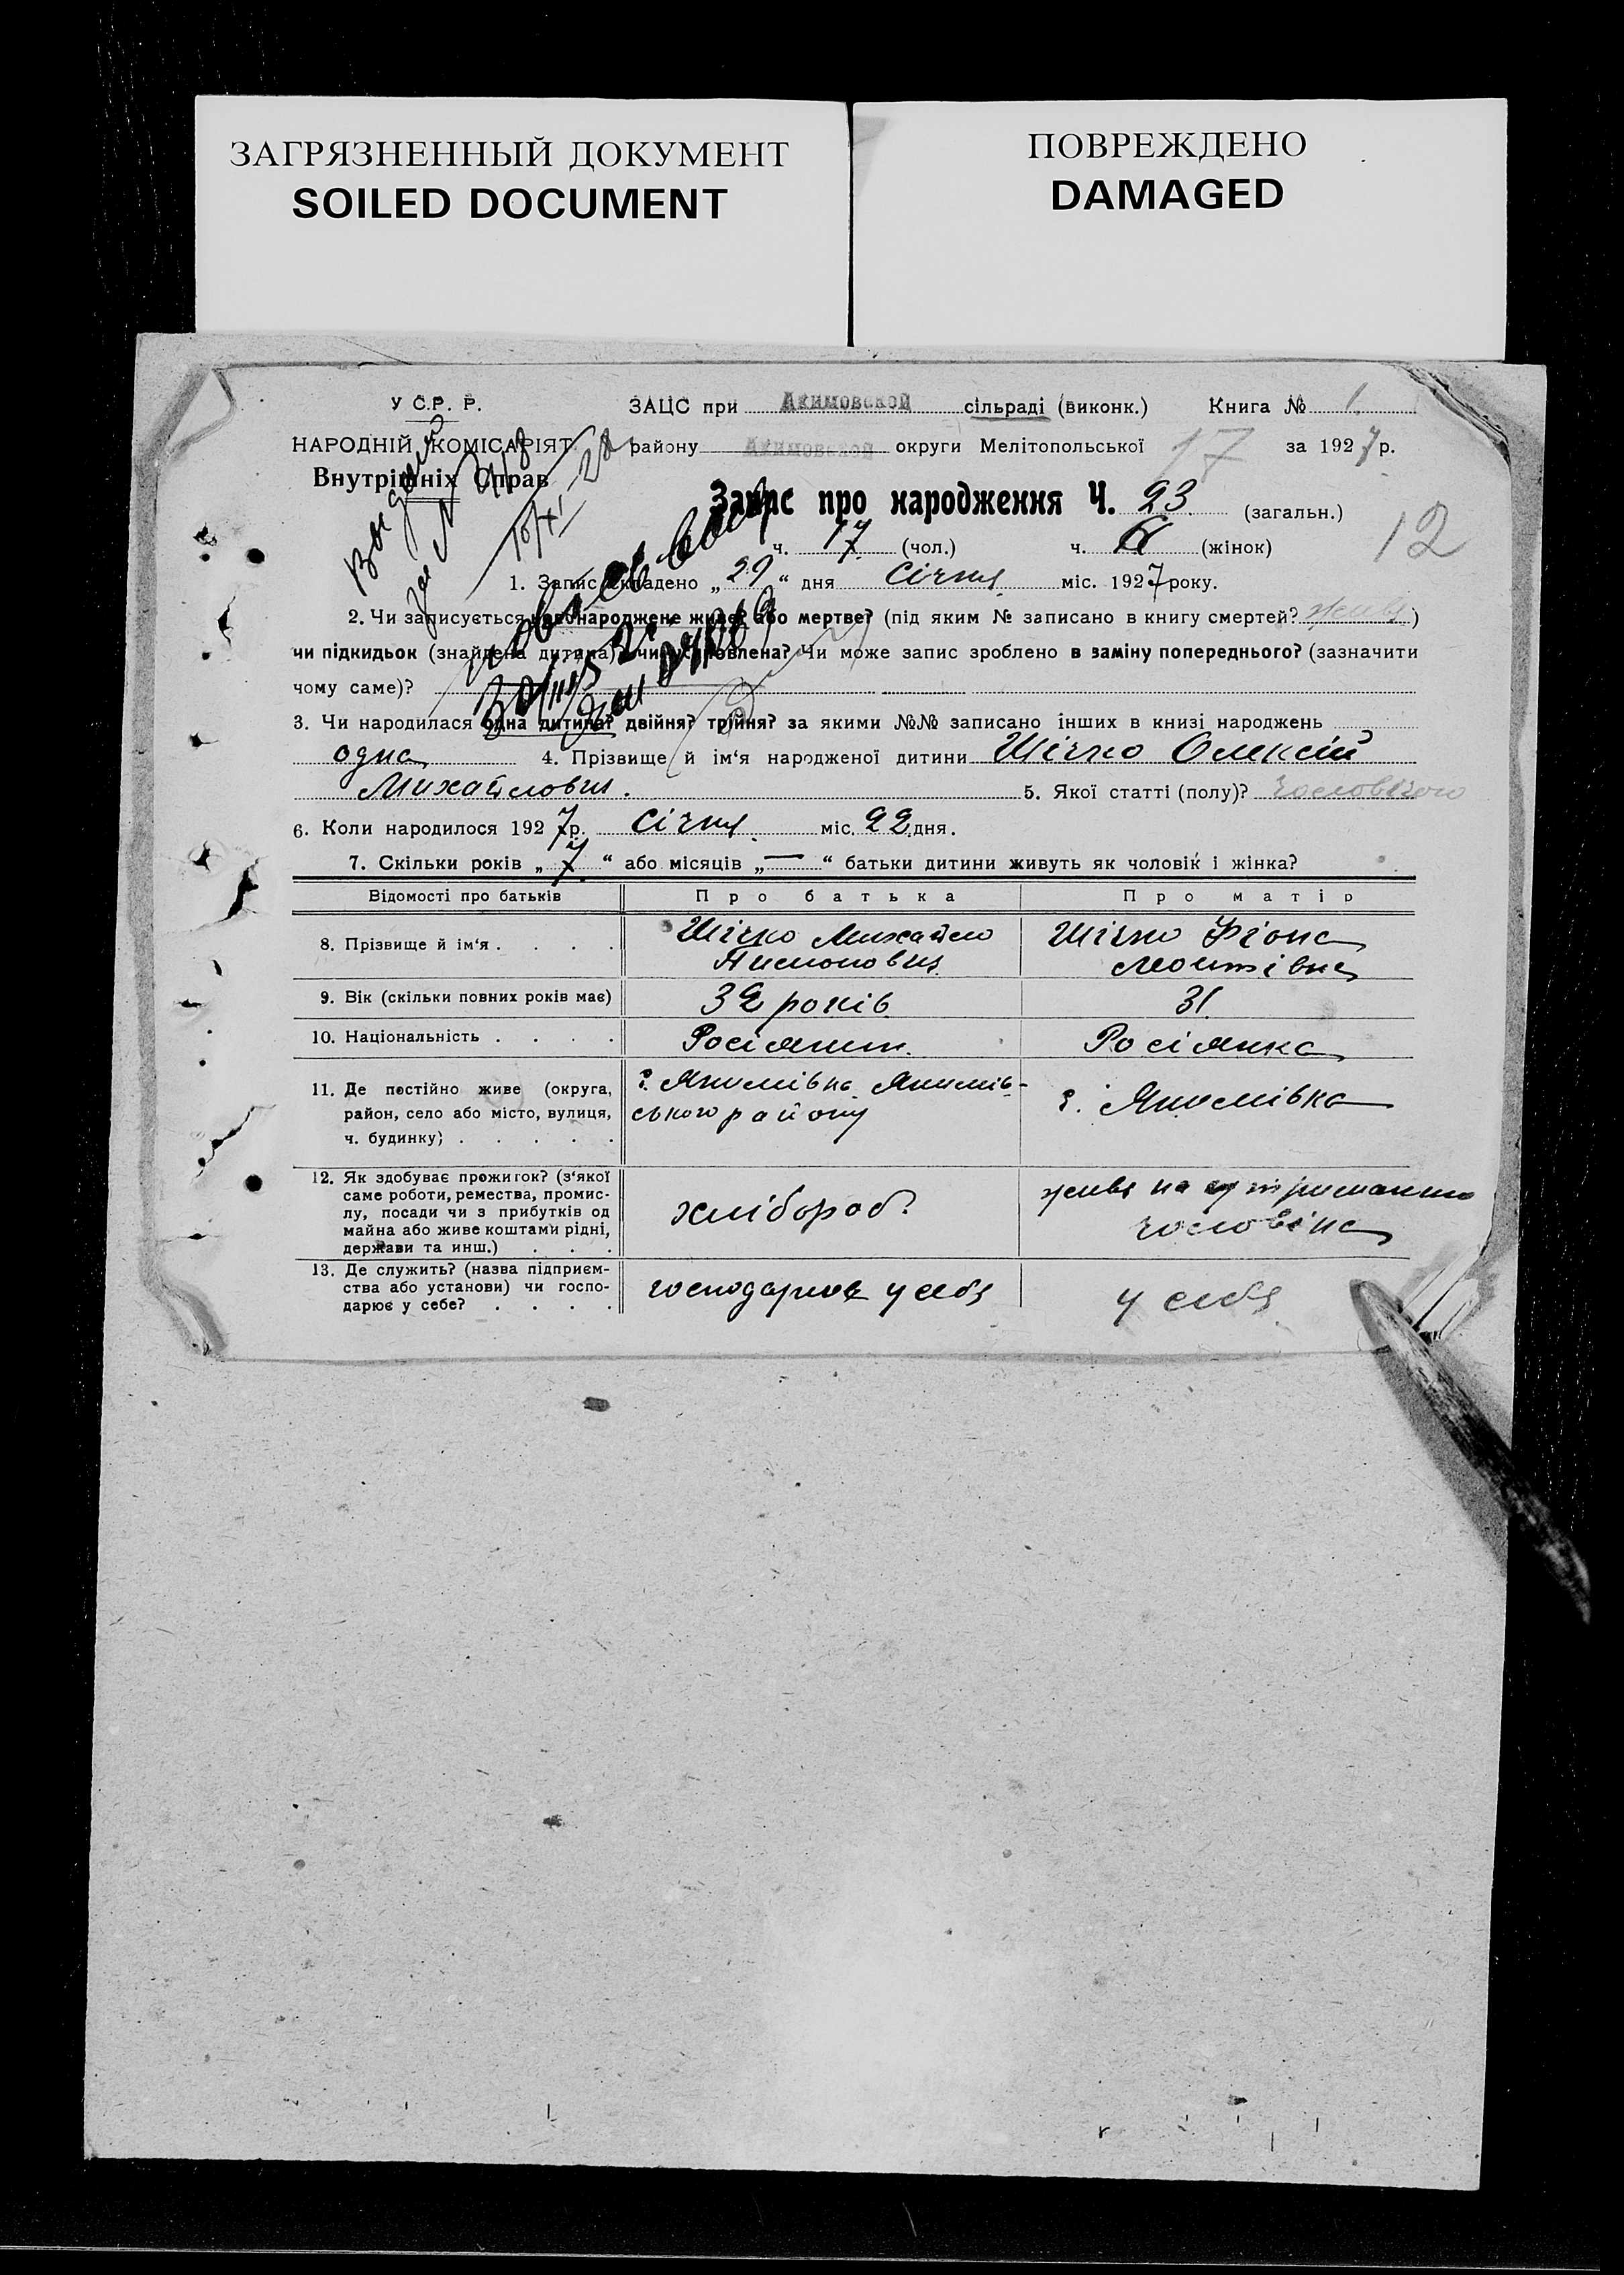 ЗАГРЯЗНЕННЫЙ ДОКУМЕНТ
SOILED DOCUMENT
ПОВРЕЖДЕНО
DAMAGED
У С.Р. Р.
НАРОДНІЙ КОМІСАРІЯТ
Внутрішніх Справ
ЗАЦС при Акимовской сільраді (виконк.) Книга № 1
району Акимовской округи Мелітопольської 17 за 1927 р.
Запис про народження Ч. 23 (загальн.)
12
ч. 17 (чол.) ч. 6 (жінок)
1. Запис складено „29“ дня Січня міс. 1927 року.
2. Чи записується новонароджене живе? або мертве? (під яким № записано в книгу смертей? живе)
чи підкидьок (знайдена дитина)? чи Чи може запис зроблено в заміну попереднього? (зазначити
чому саме)?
3. Чи народилася одна дитина? двійня? трійня? за якими №№ записано інших в книзі народжень
одна 4. Прізвище й ім‘я народженої дитини Шічко Олексій
Михайлович. 5. Якої статті (полу)? чоловічого
6. Коли народилося 1927 р. Січня міс. 22 дня.
7. Скільки років „7“ або місяців „—“ батьки дитини живуть як чоловік і жінка?
Відомості про батьків Про батька Про матір
8. Прізвище й ім‘я . . . . Шічко Михайло Шічко Фіона
9. Вік (скільки повних років має) 32 років 31
10. Національність . . . . Росіянин. Росіянка
11. Де постійно живе (округа, район, село або місто, вулиця, ч. будинку) . . . . .
с. Якимівка Якимів-
ського району
с. Якимівка
12. Як здобуває прожиток? (з‘якої
саме роботи, ремества, промис-
лу, посади чи з прибутків од
майна або живе коштами рідні,
держави та инш.) . . .
хлібороб
живе на утриманню
чоловіка
13. Де служить? (назва підприєм-
ства або установи) чи госпо-
дарює у себе? . . . .
господарює у себе
у себе